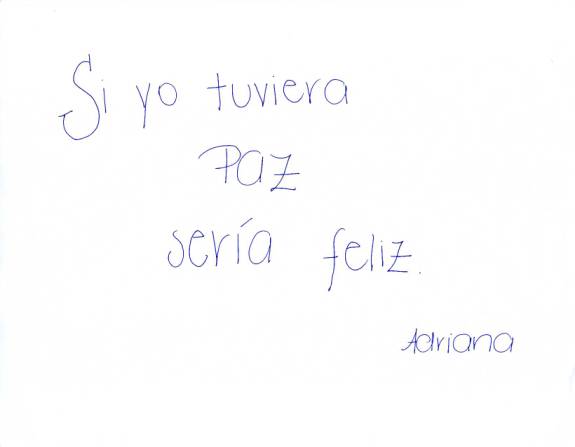 Si yo tuviera
PAZ
sería feliz.
Adriana